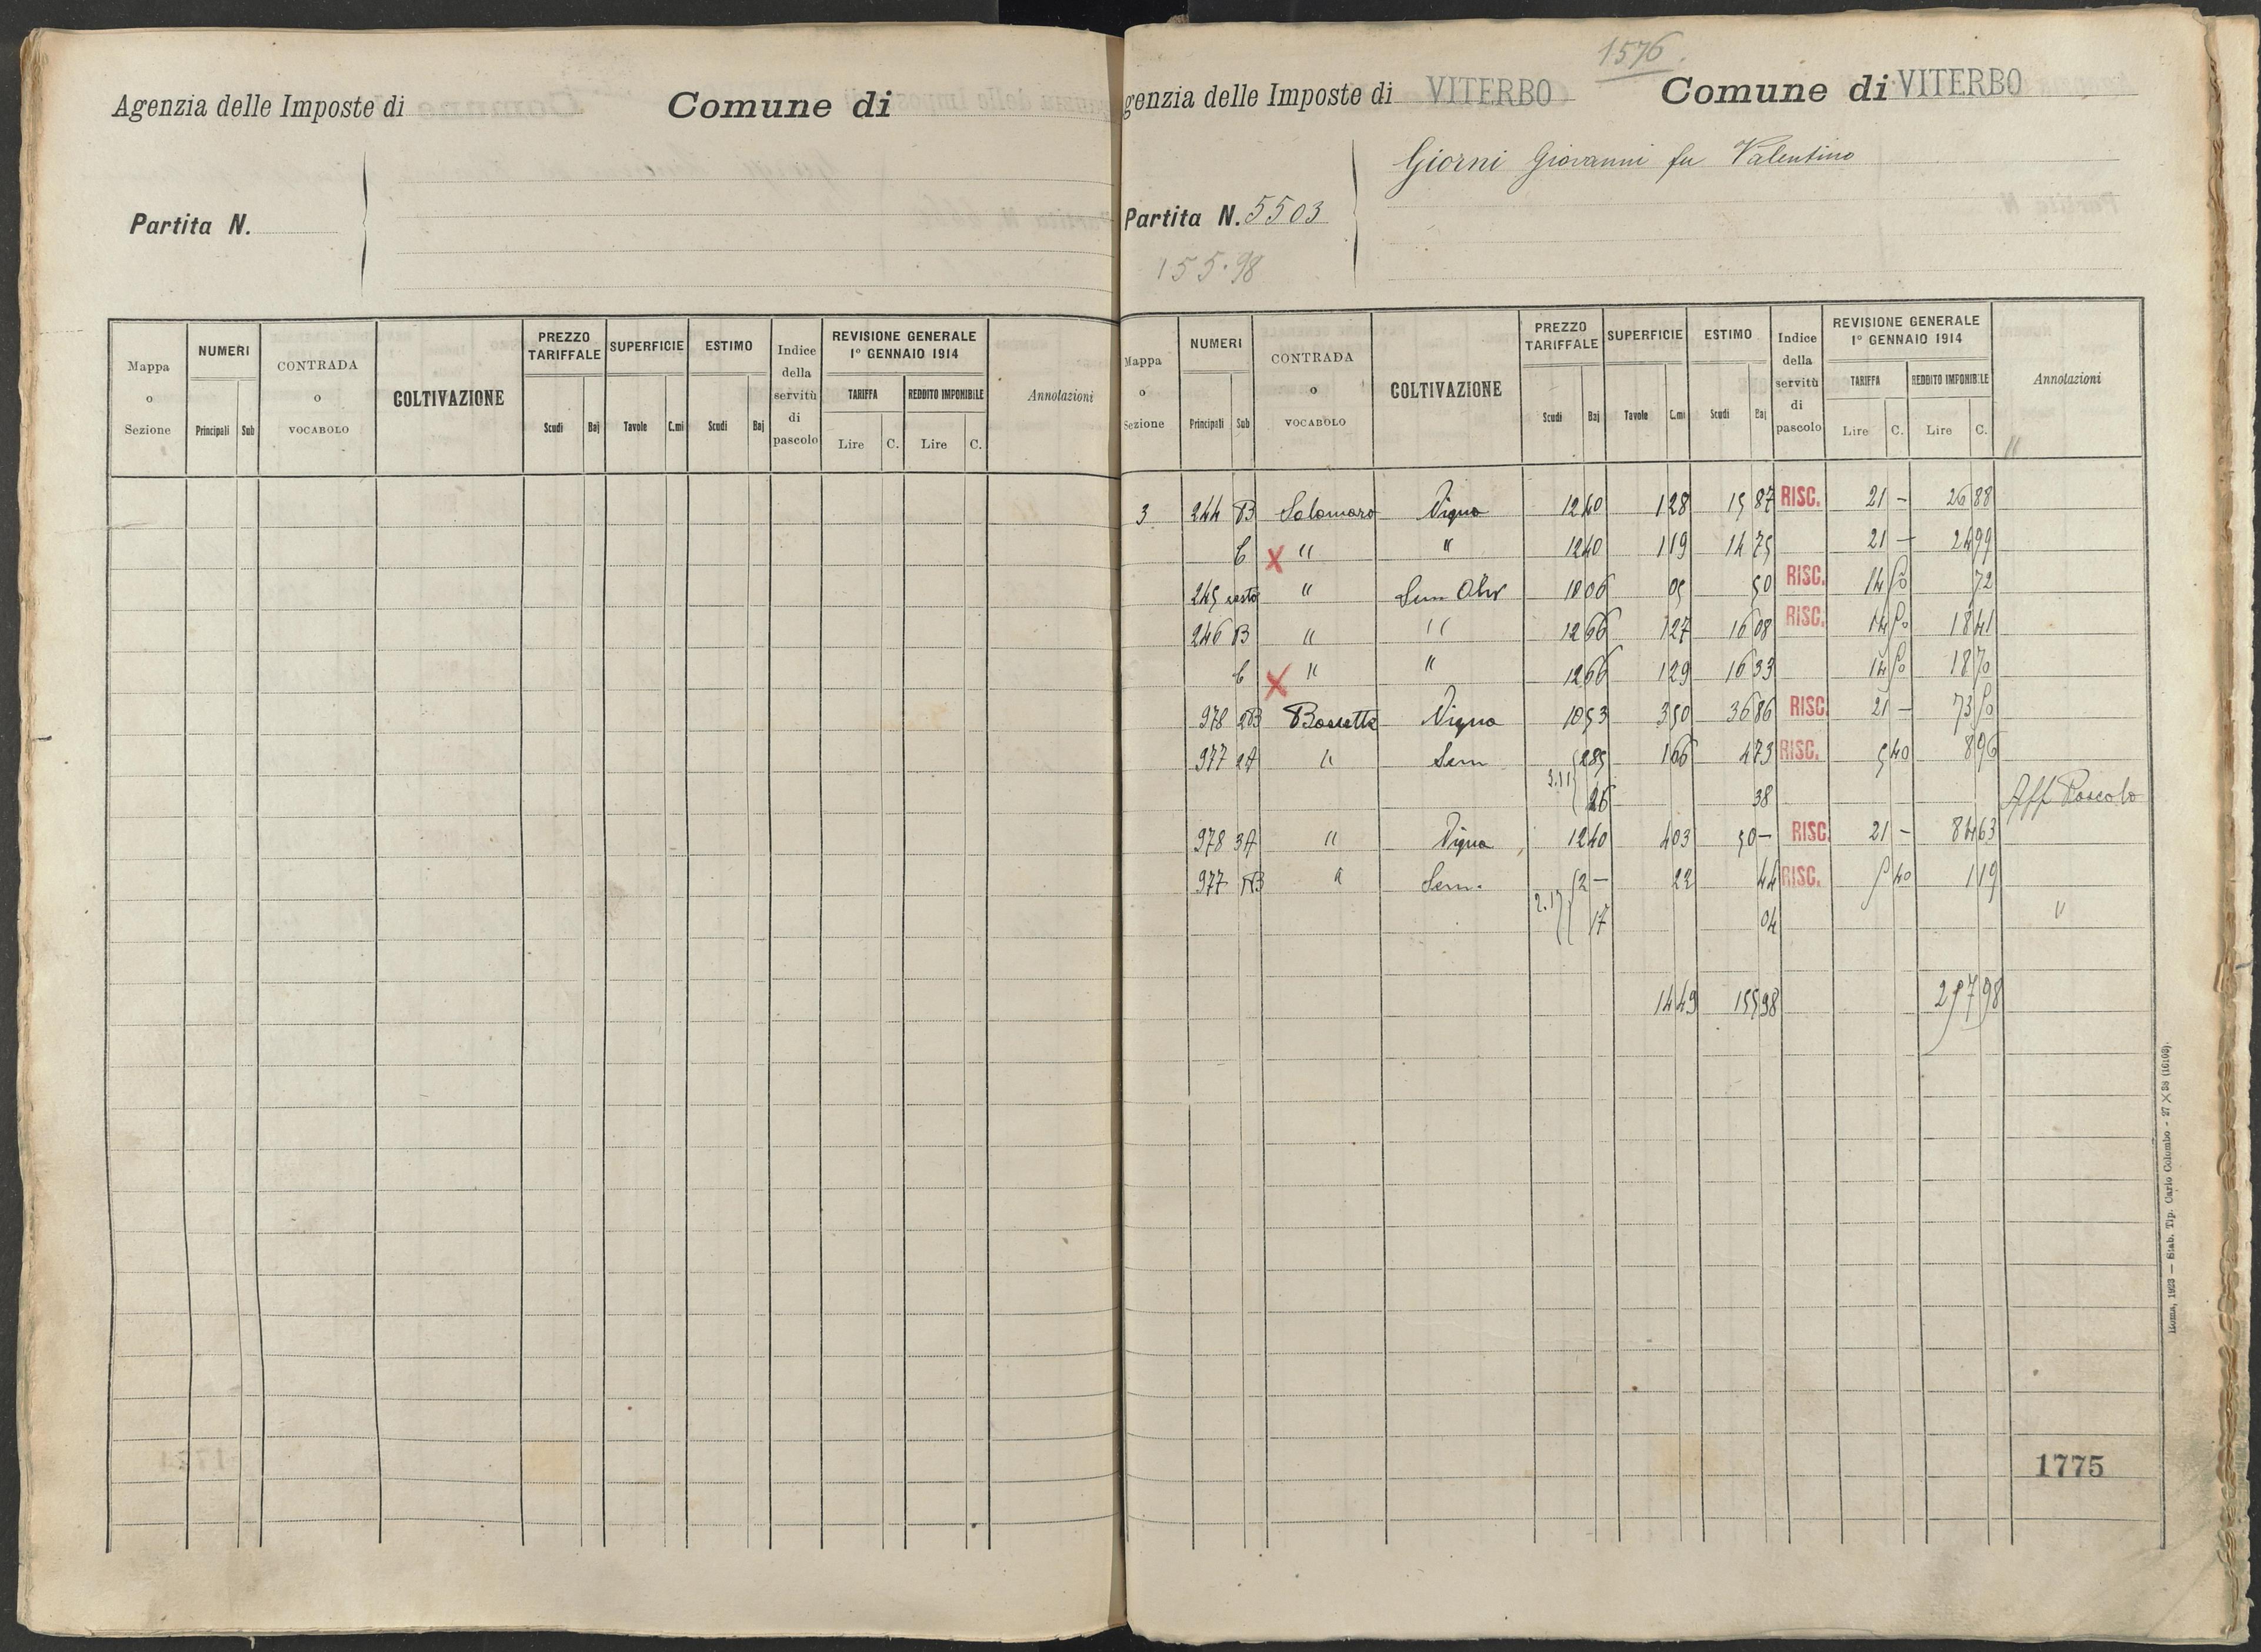 Agenzia delle Imposte di
Comune di
Partita N.
Mappa o Sezione
NUMERI
Principali Sub
CONTRADA o VOCABOLO
COLTIVAZIONE
PREZZO TARIFFALE
Scudi Baj
SUPERFICIE
Tavole C.mi
ESTIMO
Scudi Baj
Indice della servitù di pascolo
REVISIONE GENERALE
1° GENNAIO 1914
TARIFFA REDDITO IMPONIBILE
Lire C. Lire C.
Annotazioni
1576.
genzia delle Imposte di VITERBO Comune di VITERBO
Giorni Giovanni fu Valentino
Partita N. 5503
155.98
Mappa o Sezione
NUMERI
Principali Sub
CONTRADA o VOCABOLO
COLTIVAZIONE
PREZZO TARIFFALE
Scudi Baj
SUPERFICIE
Tavole C.mi
ESTIMO
Scudi Baj
Indice della servitù di pascolo
REVISIONE GENERALE
1° GENNAIO 1914
TARIFFA REDDITO IMPONIBILE
Lire C. Lire C.
Annotazioni
"
3 244 B Salamaro Vigna 12 40 1 28 15 87 RISC. 21 - 26 88
C X " " 12 40 1 19 14 75 21 - 24 99
245 resto " Sem Oliv 10 06 05 50 RISC. 14 50 72
246 B " " 12 66 1 27 16 08 RISC. 14 50 18 41
C X " " 12 66 1 29 16 33 14 50 18 70
978 2B Bossette Vigna 10 53 3 50 36 86 RISC. 21 - 73 50
977 2A " Sem 2 85 1 66 4 73 RISC. 5 40 8 96
3.11 26 38 Aff Pascolo
978 3A " Vigna 12 40 4 03 50 - RISC. 21 - 84 63
977 B " Sem. 2 - 22 44 RISC. 5 40 1 19
2.17 17 04 "
14 49 155 98 257 98
1775
Roma, 1923 — Stab. Tip. Carlo Colombo - 27 X 38 (10103).